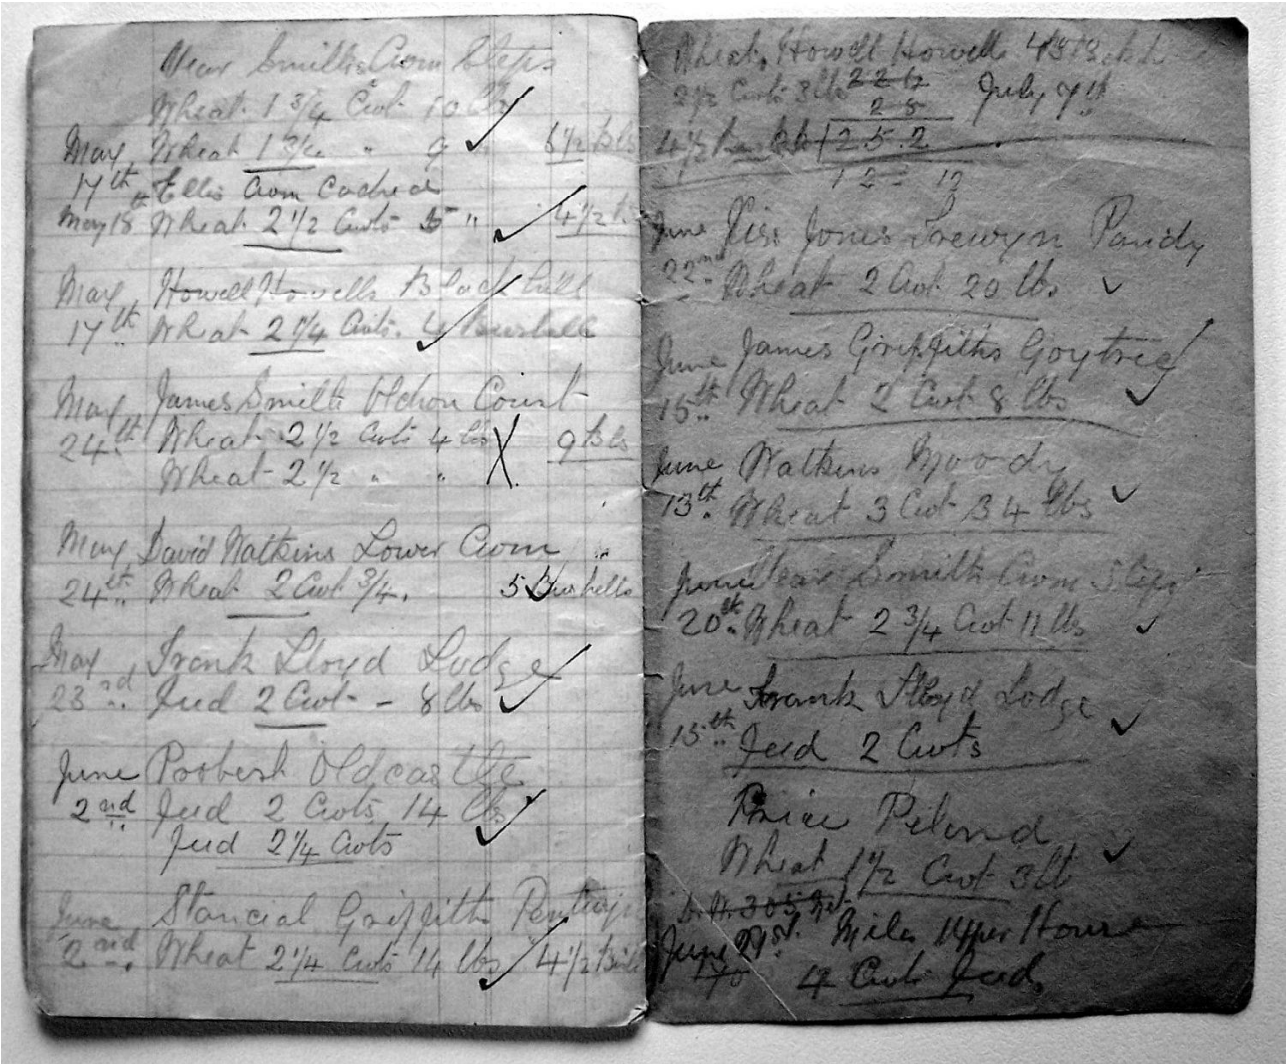 Near Smiths Cwm Steps
Wheat 1 3/4 Cwt 10 lbs
May, Wheat 1 3/4 " 9 6 1/2 Bls
17th Ellis Cwm Coched
May 18th Wheat 2 1/2 Cwts 5 " 4 1/2
May, Howell Howells Black hill
17th Wheat 2 1/4 Cwts. 4 Bushells
May, James Smith Olchon Court
24th Wheat 2 1/2 Cwts 4 lbs 9 Bls
Wheat 2 1/2 " "
May, David Watkins Lower Cwm
24th Wheat 2 Cwt 3/4. 5 Bushells
May, Frank Lloyd Lodge
23rd Feed 2 Cwt - 8 lbs
June Probert Oldcastle
2nd Feed 2 Cwts 14 lbs
Feed 2 1/4 Cwts
June Griffiths
2nd. Wheat 2 1/4 Cwts 14 lbs 4 1/2
Wheat, Howell Howells
2 1/2 Cwts 3 lbs July 7th
2 8
4 1/2 2.5.2
June Jones Trewyn Pandy
22nd Wheat 2 Cwt 20 lbs.
June James Griffiths Goytrie
15th Wheat 2 Cwt 8 lbs
June Watkins Moody
13th. Wheat 3 Cwt 34 lbs
June Near Smith Cwm Steps
20th. Wheat 2 3/4 Cwt 11 lbs
June Frank Lloyd Lodge
15th Feed 2 Cwts
Price Peland
Wheat 1 1/2 Cwt 3 lb
June 21st. Miles Upper House
4 Cwts Feed.